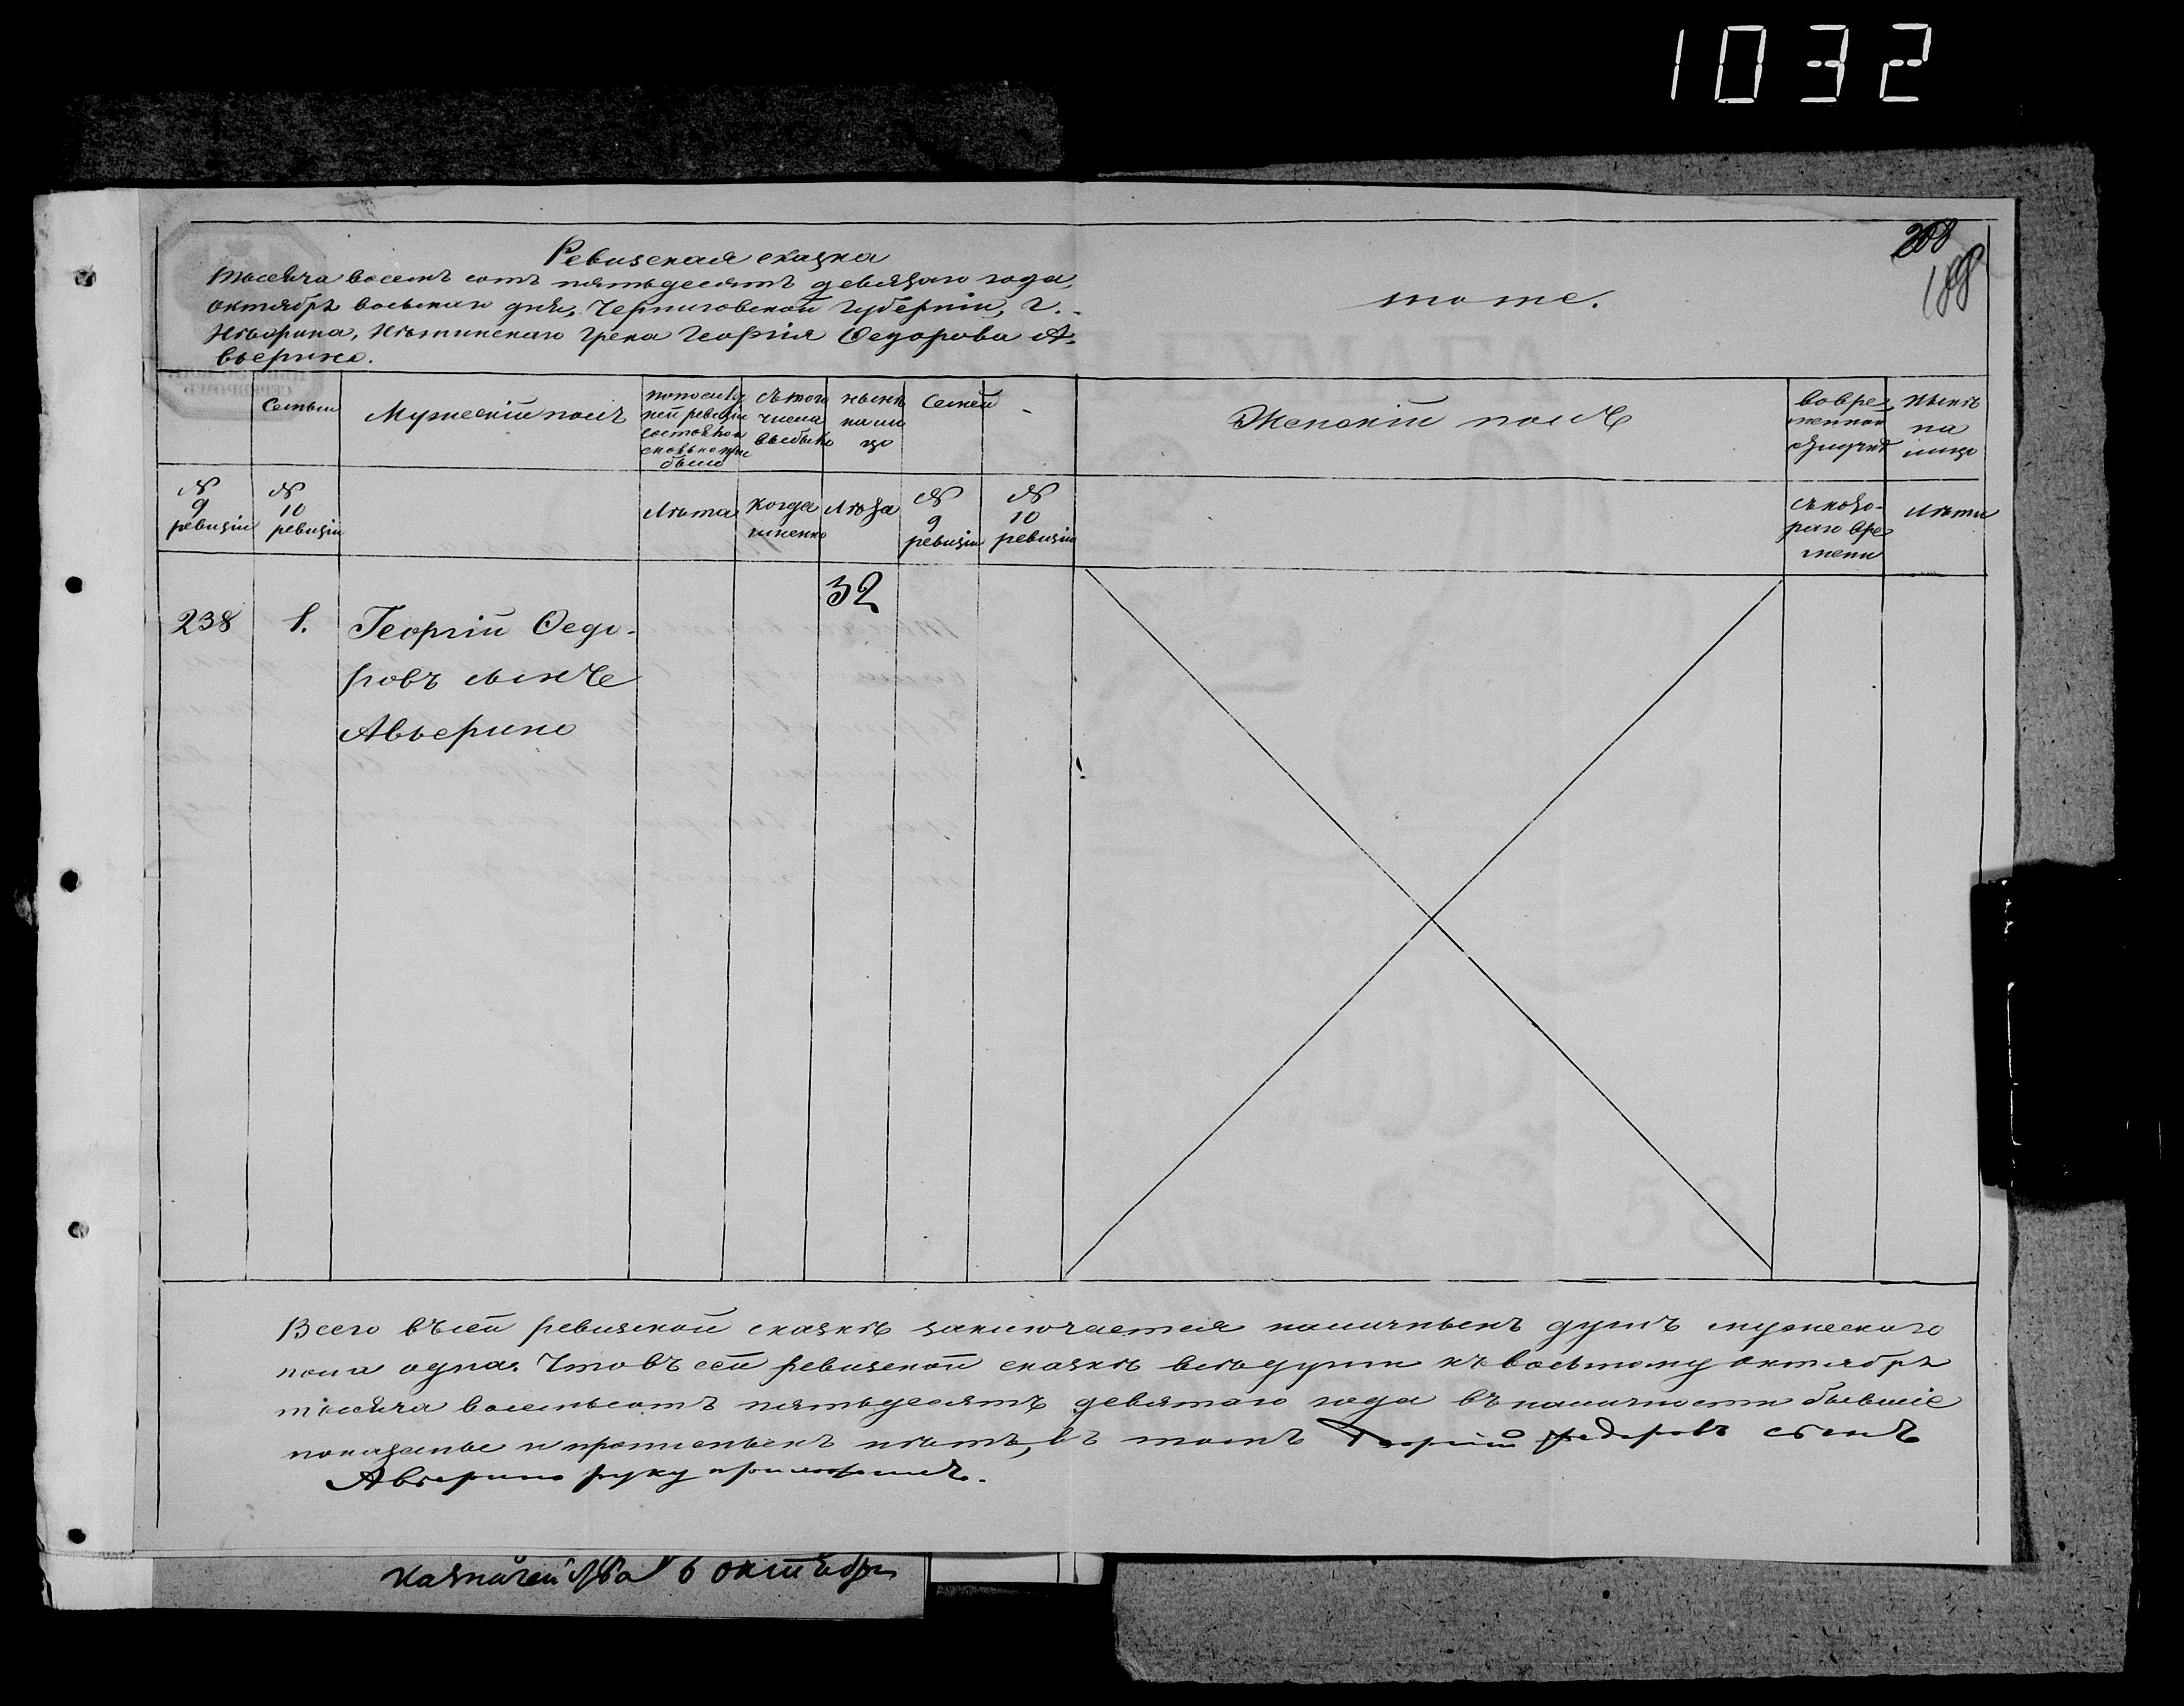 1032
208
188
Ревизская сказка
Тысяча восемъ сотъ пятьдесятъ девятаго года,
октября восьмаго дня, Черниговской губерніи, г.
Нѣжина, Нѣжинскаго грека Георгія Федорова А-
вьерино.
тоже.
Семьи
Мужескій полъ
По послѣд
ней ревизіи
состояло и
сколько при
было
съ того
числа
выбыло
нынѣ
на ли
цо
Семей
Женскій полъ
во вре-
менной
отлучкѣ
Нынѣ
на
лицо
№
9
ревизіи
№
10
ревизіи
Лѣта
Когда
именно
Лѣта
№
9
ревизіи
№
10
ревизіи
съ кото-
раго вре
мени
Лѣта
238 1. Георгій Федо-
ровъ сынъ
Авьерино
32
Всего въ сей ревизской сказкѣ заключается наличныхъ душъ мужескаго
пола одна. Что въ сей ревизской сказкѣ всѣ души къ восьмому октября
тысяча восемьсотъ пятьдесятъ девятаго года въ наличности бывшіе
показаны и прописныхъ нѣтъ, въ томъ Георгій Федоровъ сынъ
Авьерино руку приложилъ.
Казначейства 6 октября